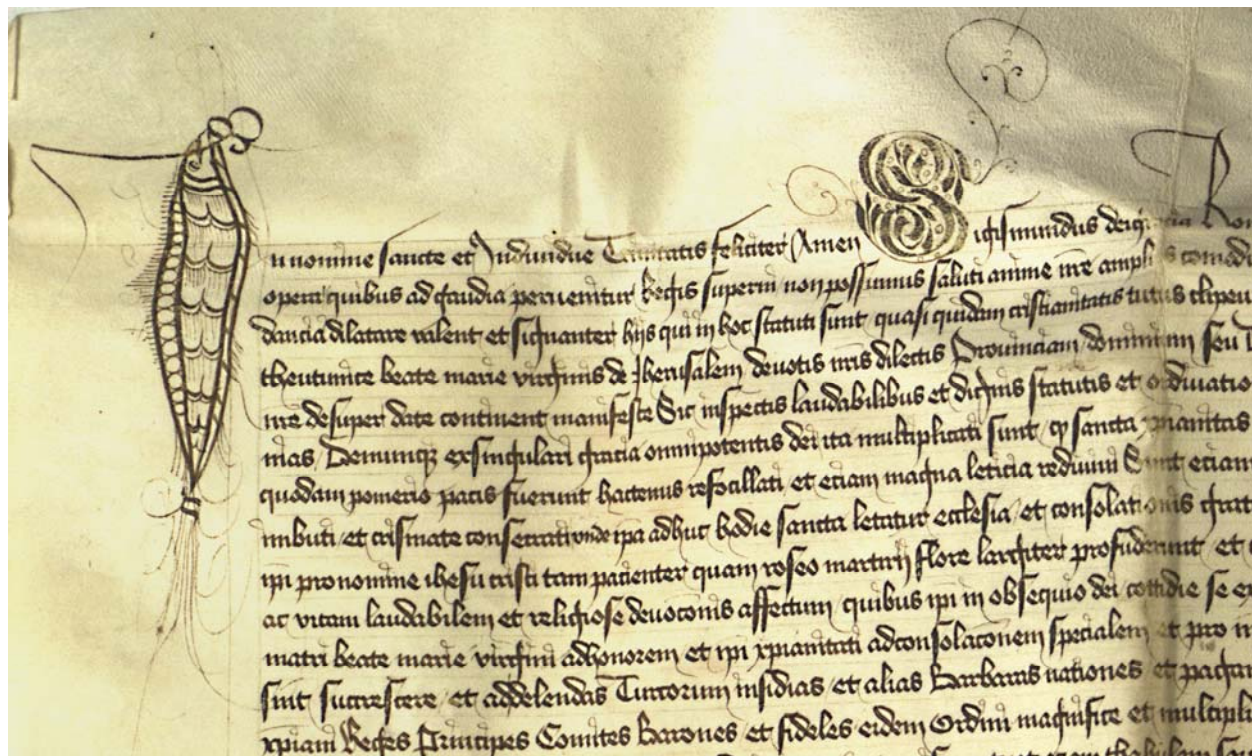 In nomine sancte et Individue Trinitatis feliciter Amen Sigismundus dei gracia Ro
opera quibus ad gaudia pervenitur Regis superni non possumus saluti anime nre ampli comedi
dancia dilatare valent et signanter hijs qui in hoc statuti sunt quasi quidam cristianitatis tutus clipeu
theutunice beate marie virginis de Jherusalem devotis nris dilectis Provinciam dominium seu
nre desuper date continent manifeste Sic inspectis laudabilibus et dignis statutis et ordinatio
mas Demumqz ex singulari gracia omnipotentis dei ita multiplicati sunt qz sancta xpianitas
quodam pomerio pacis fuerunt hactenus refocillati et eciam magna leticia redivivi Sunt eciam
imbuti et crismate consecrati unde ipa adhuc hodie sancta letatur ecclesia et consolationis grat
ipi pro nomine ihesu cristi tam pacienter quam roseo martirij flore largiter profuderunt et
ac vitam laudabilem et religiose devoconis affectum quibus ipi in obsequio dei cottidie se ex
matri beate marie virgini ad honorem et ipi xpianitati ad consolaconem specialem et pro
sint succrescere et ad delendas Turcorum insidias et alias Barbaras nationes et pagan
xpiani Reges Principes Comites Barones et fideles eidem Ordini magnifice et multipli